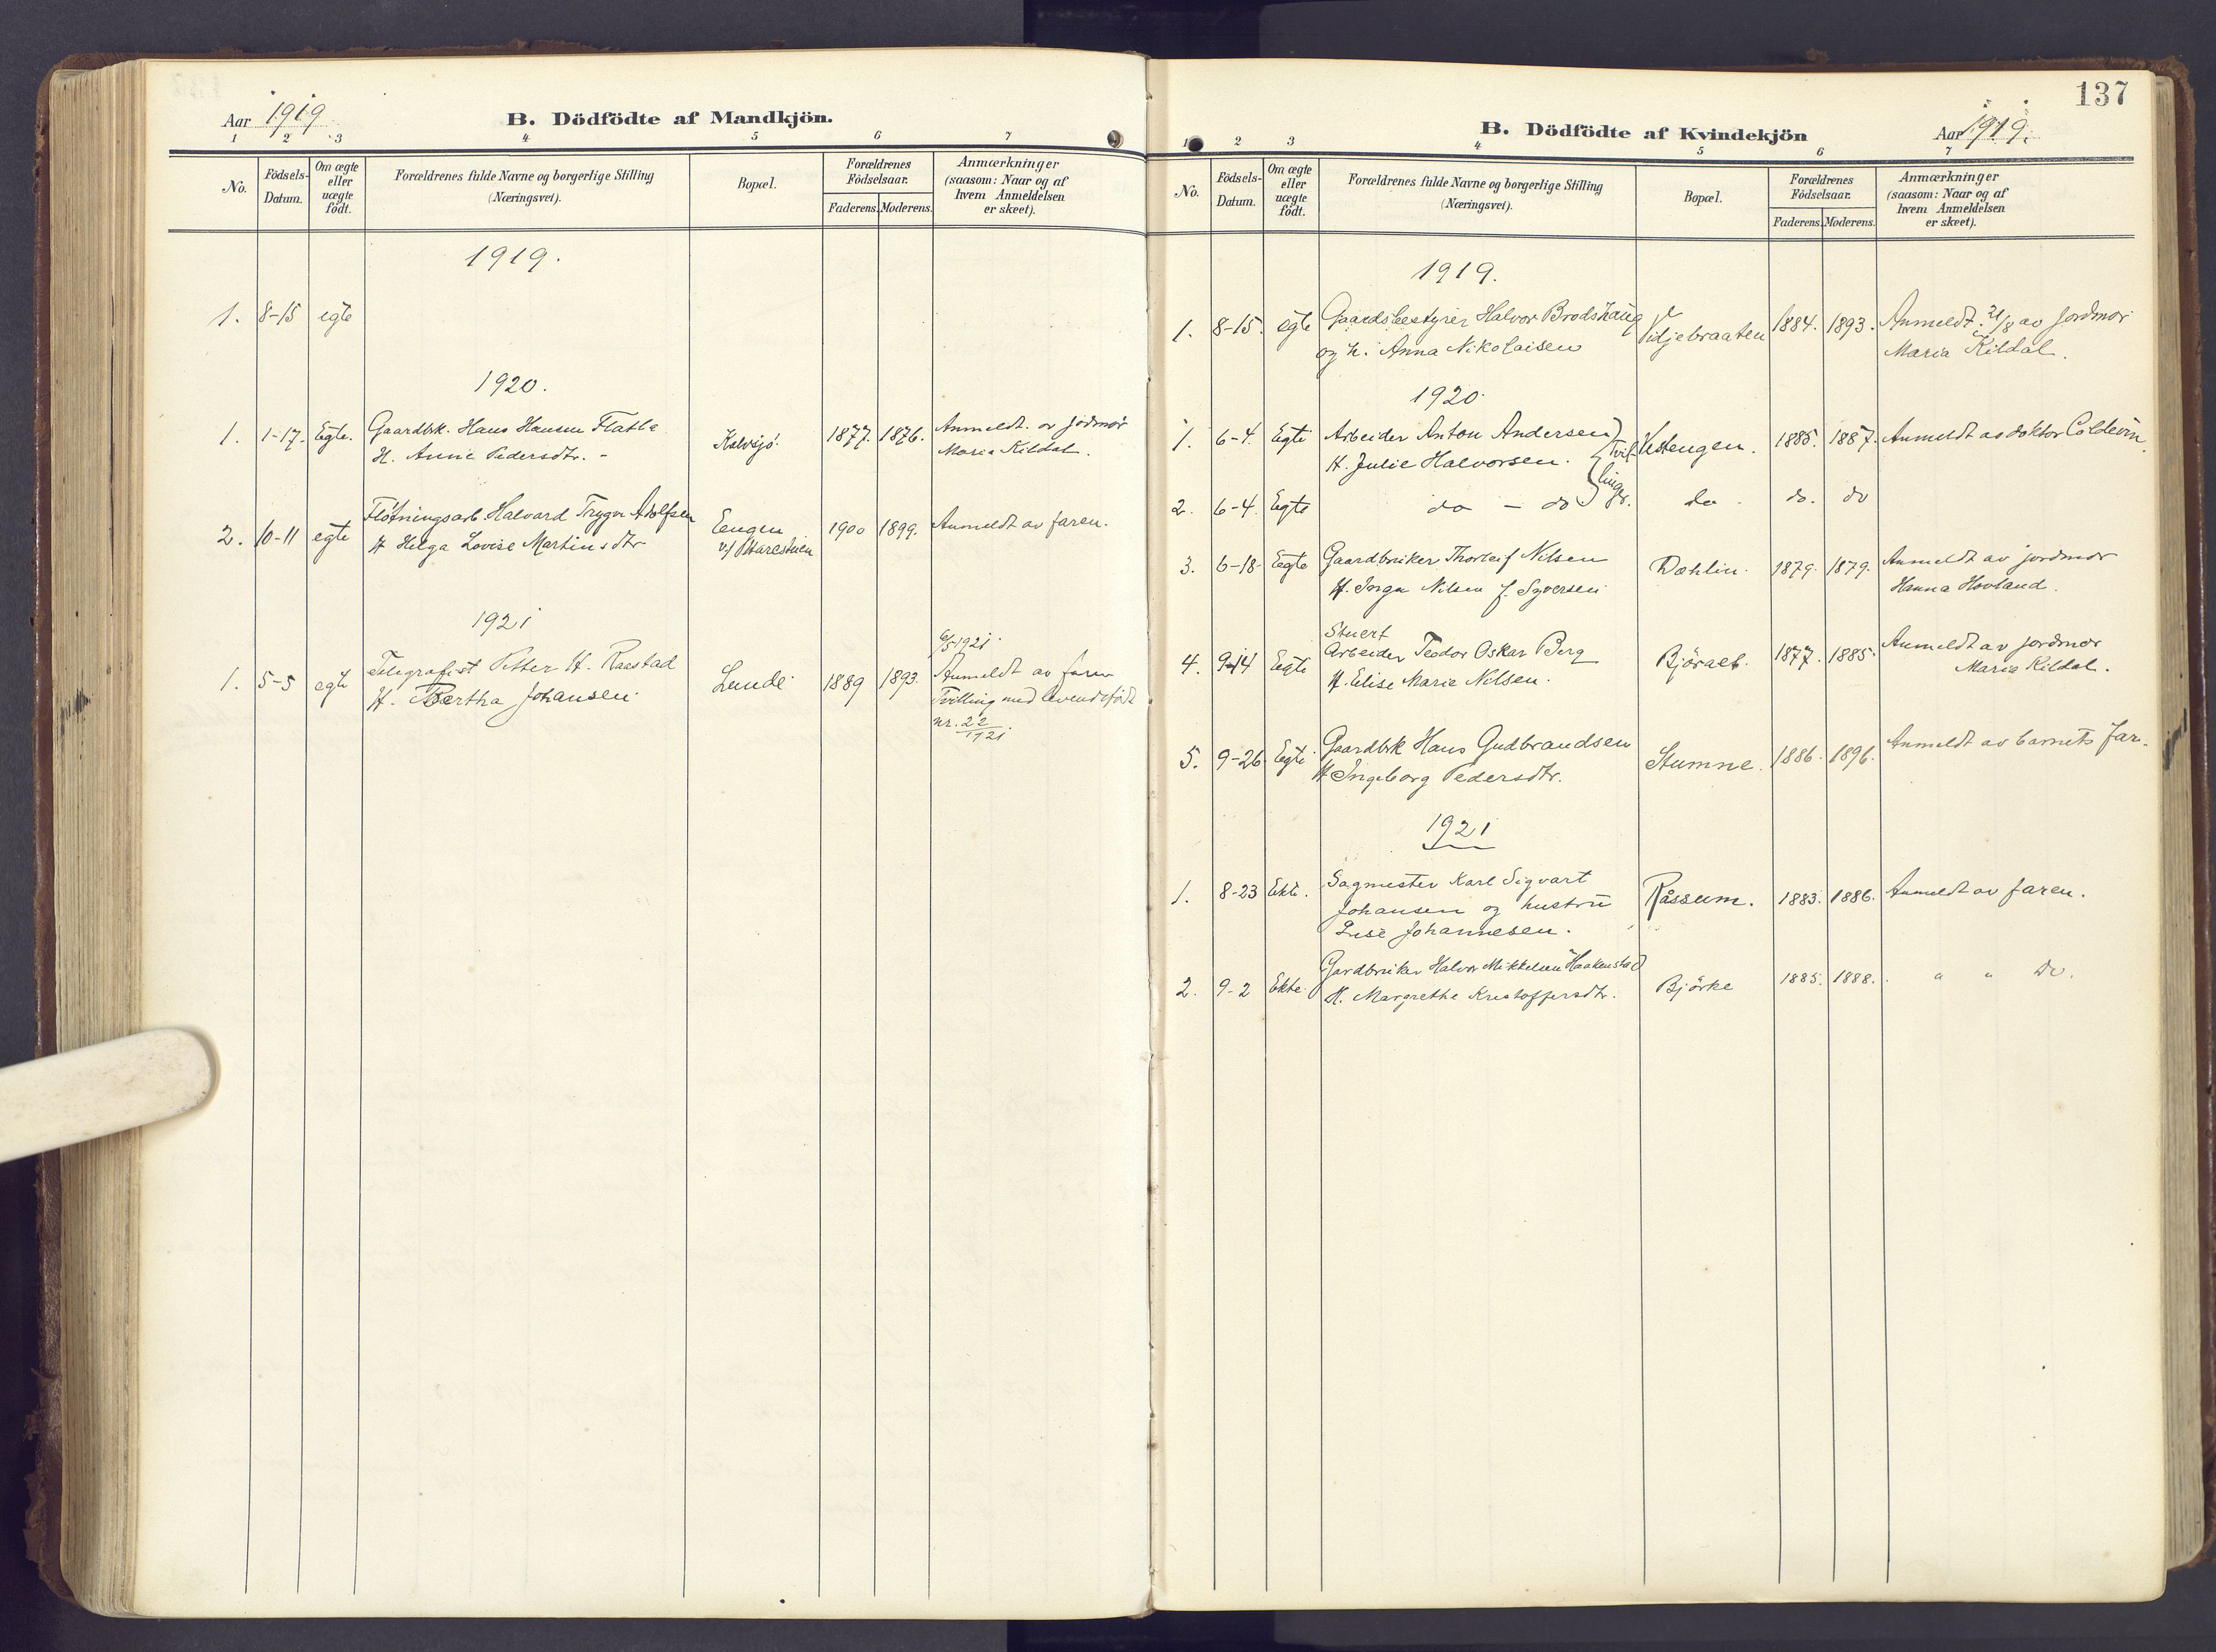 Aar 1919
B. Dödfödte af Mandkjön.
1 2 3 4 5 6 7
No.
Födsels-
Datum.
Om ægte
eller
uægte
födt.
Forældrenes fulde Navne og borgerlige Stilling
(Næringsvei).
Bopæl.
Forældrenes
Födselsaar.
Faderens. Moderens.
Anmærkninger
(saasom: Naar og af
hvem Anmeldelsen
er skeet).
1919.
1. 8-15 egte
1920.
1. 1-17. Egte. Gaardbk. Hans Hansen Flatla Kalvsjø. 1877. 1876. Anmeldt. av jordmor
H. Anne Pedersdtr. - Maria Kildal.
2. 10-11 egte Fløtningsarb Halvard Trygve Adolfsen Eengen 1900 1899. Anmeldt av faren.
H Helga Lovise Martinsdtr v/
1921
6/5 1921.
1. 5-5 egte Telegrafist Petter H. Raastad Lunde 1889 1893. Anmeldt av faren
H. Bertha Johansen Tvilling med levendefødt
nr. 22
1921.
137
B. Dödfödte af Kvindekjön
Aar 1919.
1 2 3 4 5 6 7
No.
Födsels-
Datum.
Om ægte
eller
uægte
födt.
Forældrenes fulde Navne og borgerlige Stilling
(Næringsvei).
Bopæl.
Forældrenes
Födselsaar.
Faderens. Moderens.
Anmærkninger
(saasom: Naar og af
hvem Anmeldelsen
er skeet).
1919.
1. 8-15. egte Gaardsbestyrer Halvor Brodshaug Vidjebraaten 1884. 1893. Anmeldt. 21/8 av Jordmor
og h. Anna Nikolaisen Maria Kildal.
1920
1. 6-4. Egte Arbeider Anton Andersen Tvil- Vestengen. 1885. 1887. Anmeldt av doktor Coldevin.
H. Julie Halvorsen. linger.
2. 6-4. Egte do - do do - do. do
3. 6-18 Egte Gaardbruker Thorleif Nilsen Dæhlin. 1879. 1879. Anmeldt av jordmor
H. Inga Nilsen f. Syversen Hanna Hovland.
Stuert
4. 9-14 Egte Arbeider Teodor Oskar Berg 1877. 1885. Anmeldt av jordmor
H. Elise Marie Nilsen. Maria Kildal.
5. 9-26 Egte Gaardbk Hans Gudbrandsen Stumne. 1886. 1896. Anmeldt av barnets far.
H Ingeborg Pedersdtr.
1921
1. 8-23 Ekte. Sagmester Karl Sigvart Råssum. 1883. 1886. Anmeldt av faren.
Johansen og hustru
Lise Johannesen.
2. 9-2 Ekte Gardbruker Halvor Mikkelsen Haakenstad Björke 1885. 1888. " " Do.
H. Margrethe Kristoffersdtr.